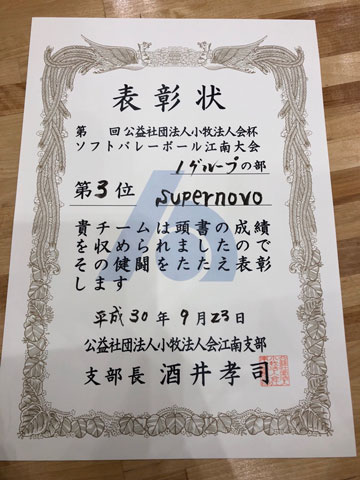 表彰状
第　回公益社団法人小牧法人会杯
ソフトバレーボール江南大会
1グループの部
第3位　supernovo
貴チームは頭書の成績
を収められましたので
その健闘をたたえ表彰
します
平成30年9月23日
公益社団法人小牧法人会江南支部
支部長 酒井孝司